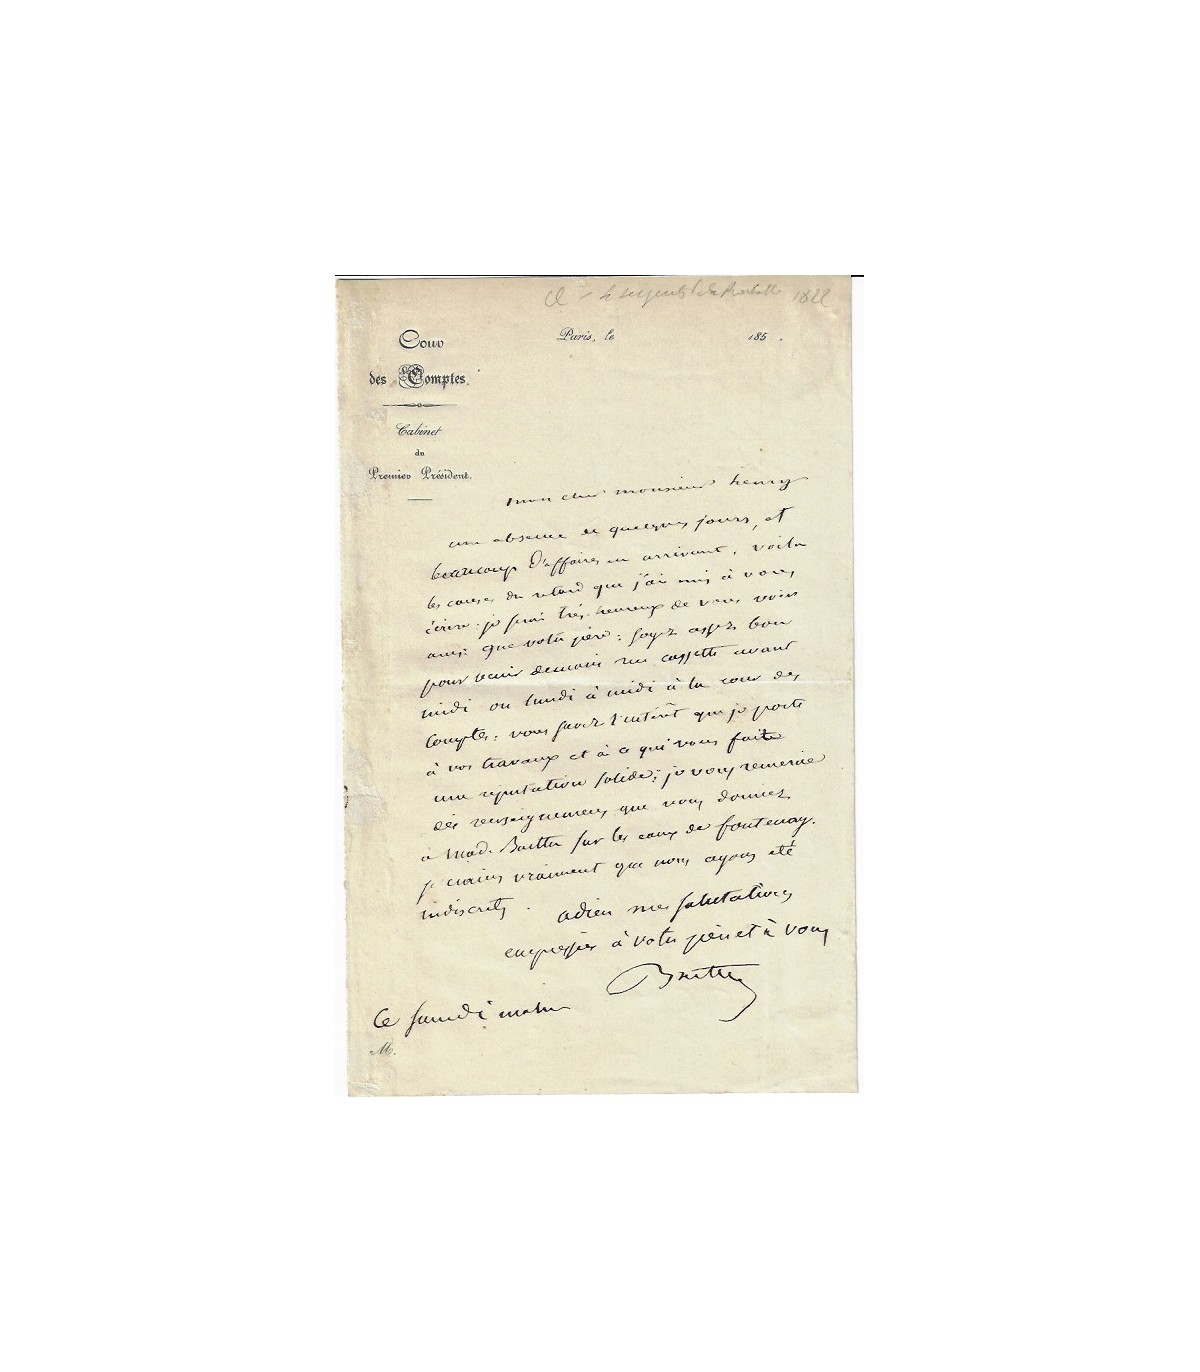 1822
Cour
Paris, le 185 .
des Comptes.
Cabinet
du
Premier Président.
mon cher monsieur henry
une absence de quelques jours, et
beaucoup d'affaires en arrivant, voila
les causes du retard que j'ai mis à vous
écrire. je serai très heureux de vous voir
ainsi que votre père : soyez assez bon
pour venir demain rue cassette avant
midi ou lundi à midi à la cour des
comptes ; vous savez l'intérêt que je porte
à vos travaux et à ce qui vous faite
une réputation solide ; je vous remercie
des renseignemens que vous donniez
à Mad. Barthe sur les eaux de fontenay.
je crains vraiment que nous ayons été
indiscrets .
adieu mes salutations
empressées à votre père et à vous
Barthe
Ce samedi matin
M.